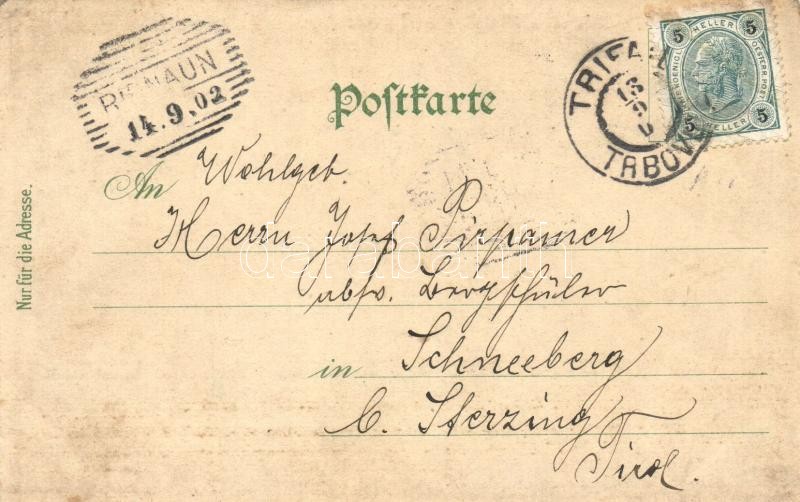 RIDNAUN
14.9.02
Postkarte
TRIFAIL
TRBOV
5 HELLER 5
5 HELLER 5
Nur für die Adresse.
An Wohlgeb.
Herrn Josef Pirpamer
abs. Bergschüler
in Schneeberg
b. Sterzing
Tirol.
darabanth